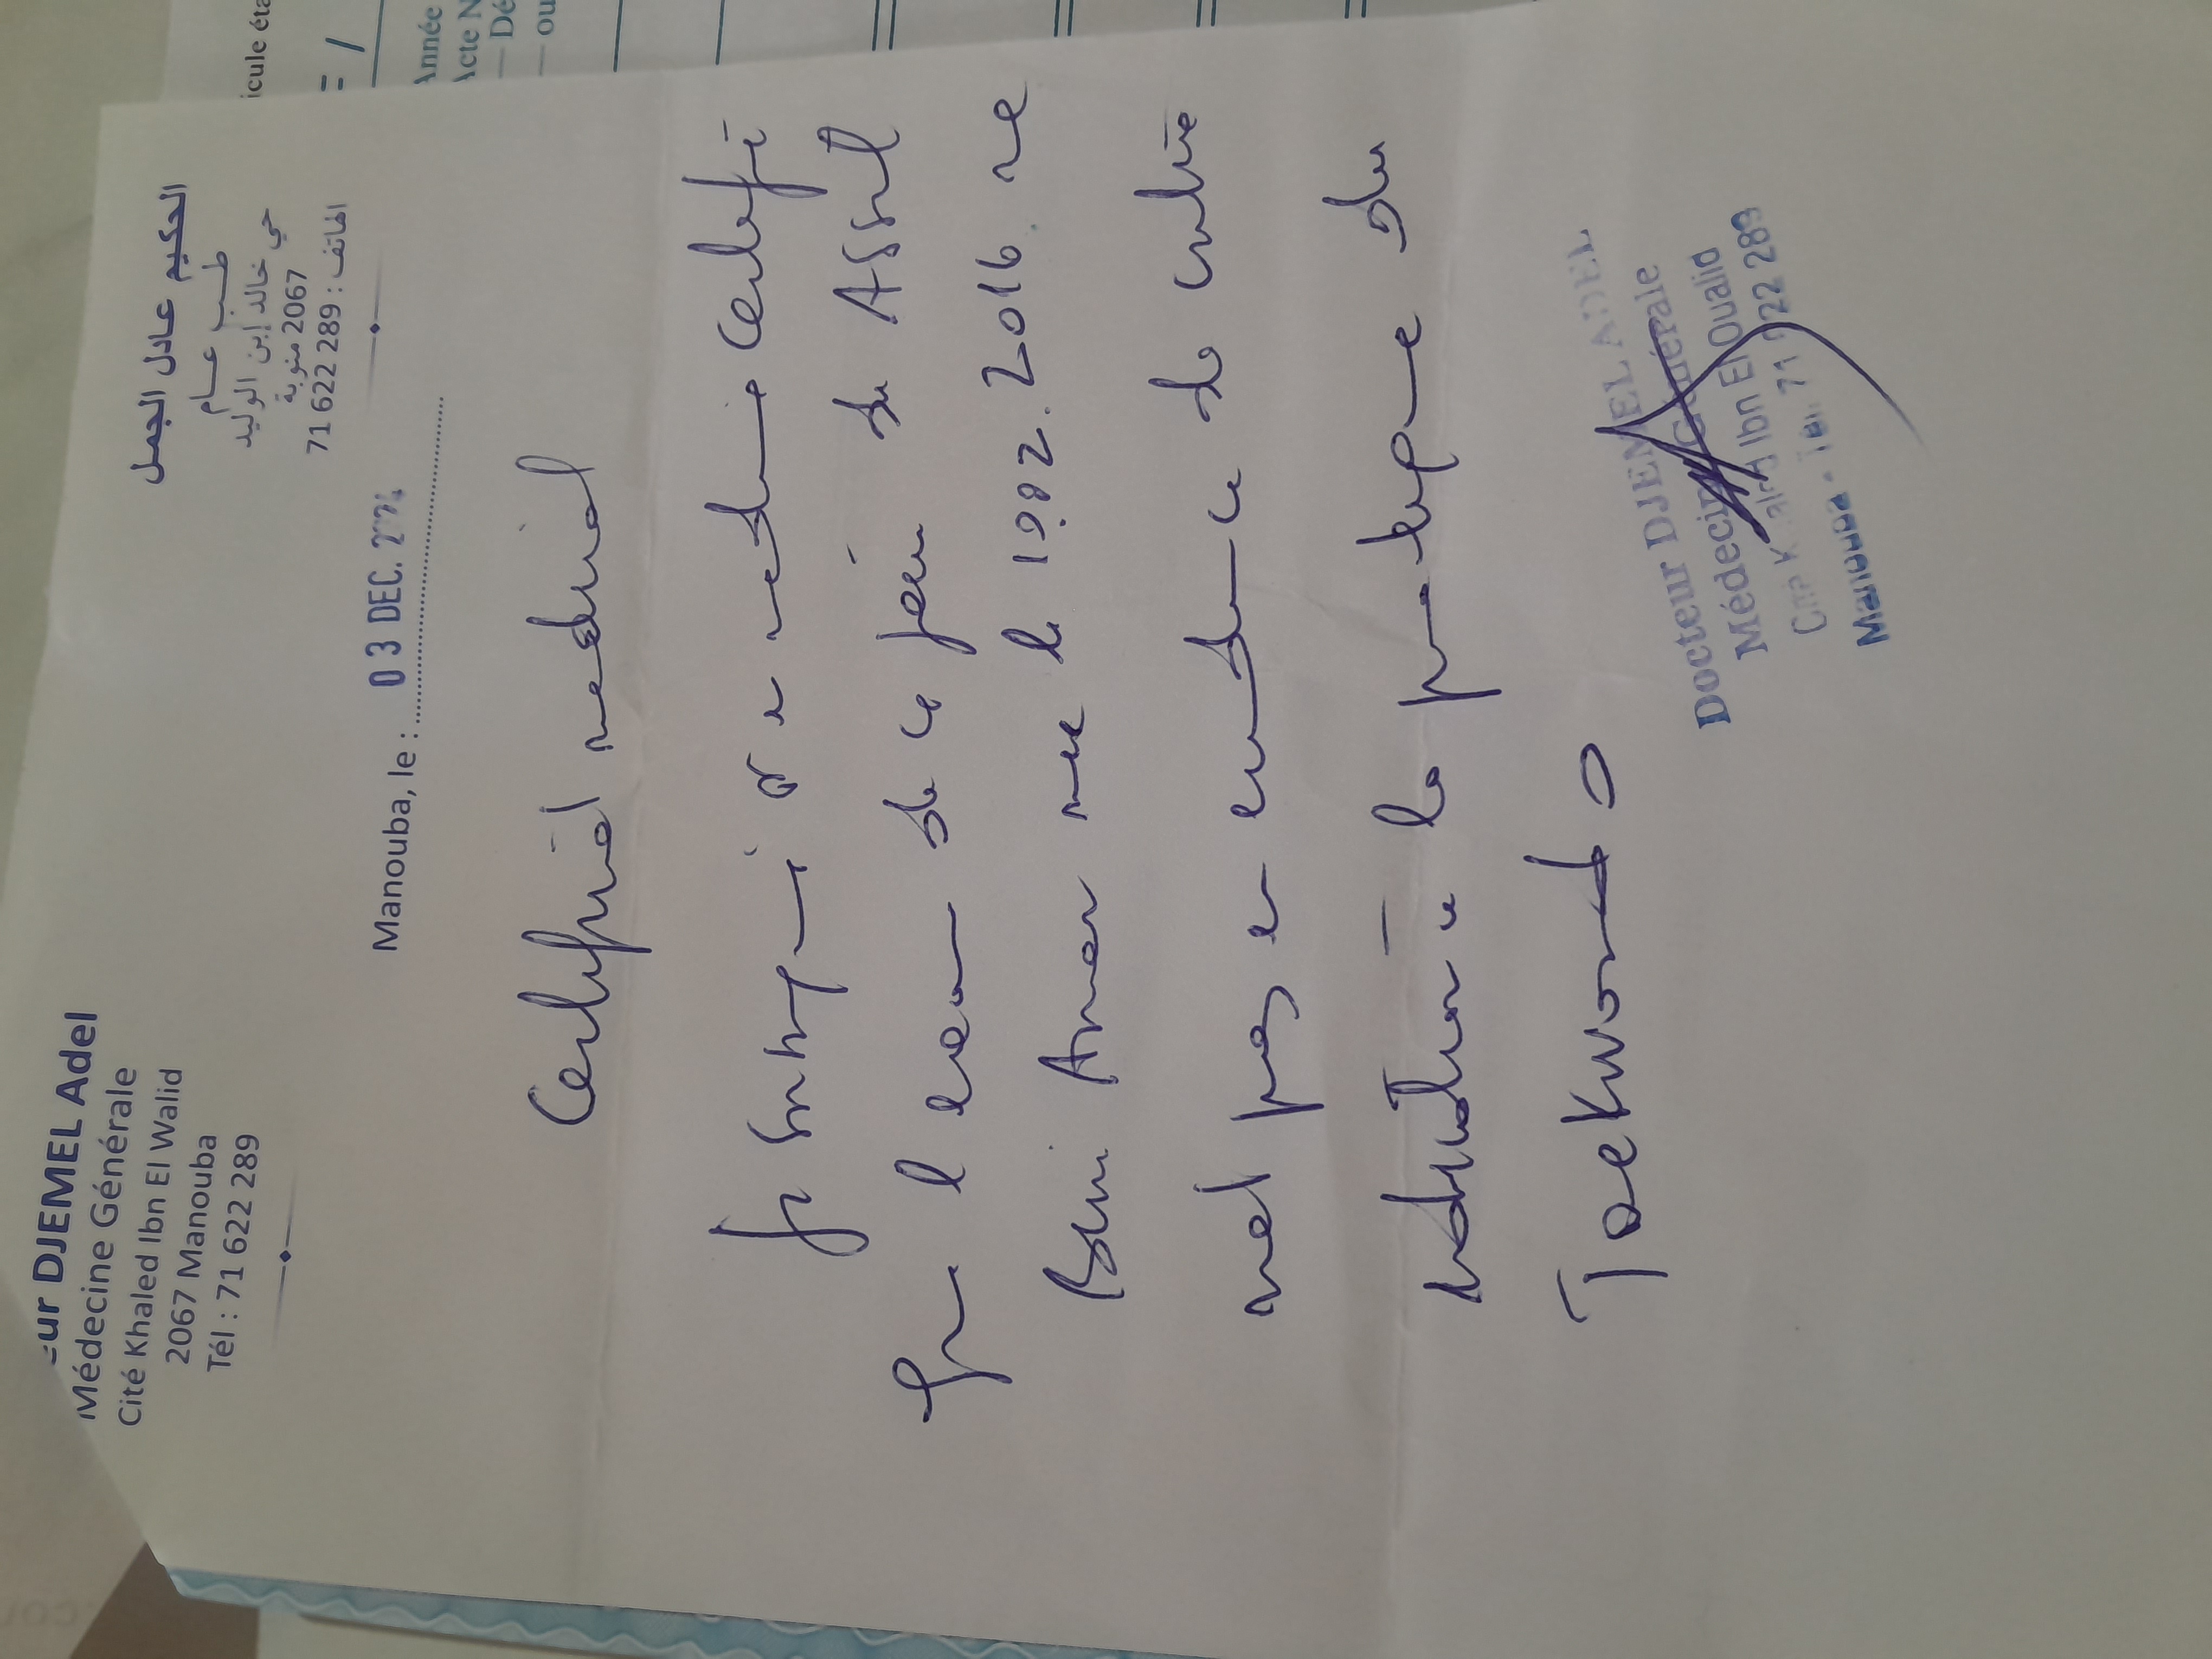 eur DJEMEL Adel
Médecine Générale
Cité Khaled Ibn El Walid
2067 Manouba
Tél : 71 622 289
الحكيم عادل الجمل
طب عام
حي خالد إبن الوليد
2067 منوبة
الهاتف : 289 622 71
Manouba, le : 03 DEC. 2024
Certificat médical
Je soussigné médecin certifie
que l'examen de ce jour de Assil
Amar né le 19.02.2016 ne
met pas en évidence de contre
indication à la pratique du
Taekwondo
Docteur DJEMEL ADEL
Médecine Générale
Cité Khaled Ibn El Oualid
Manouba - Tél. 71 622 289
icule éta
= /
Année
Acte N
— Dé
— ou